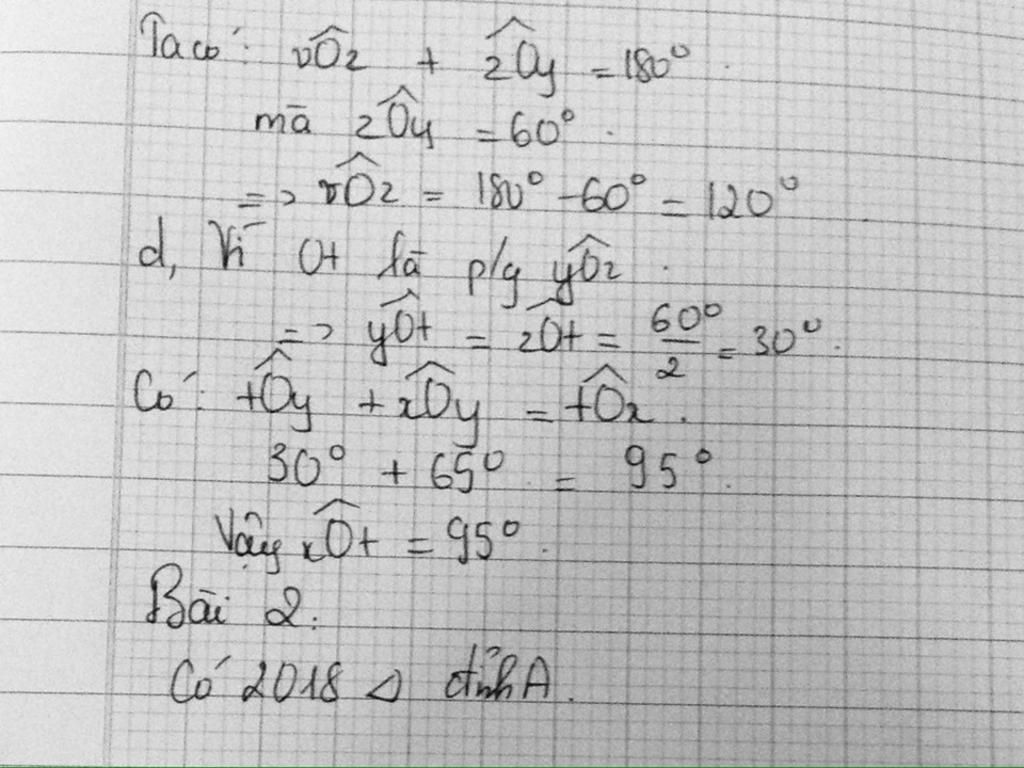 Ta có: vÔz + zÔy = 180°.
mà zÔy = 60°.
=> vÔz = 180° - 60° = 120°
d, Vì Ot là p/g yÔz.
=> yÔt = zÔt = 60°/2 = 30°.
Có: tÔy + xÔy = tÔx.
30° + 65° = 95°.
Vậy xÔt = 95°.
Bài 2.
Có 2018 Δ đỉnh A.